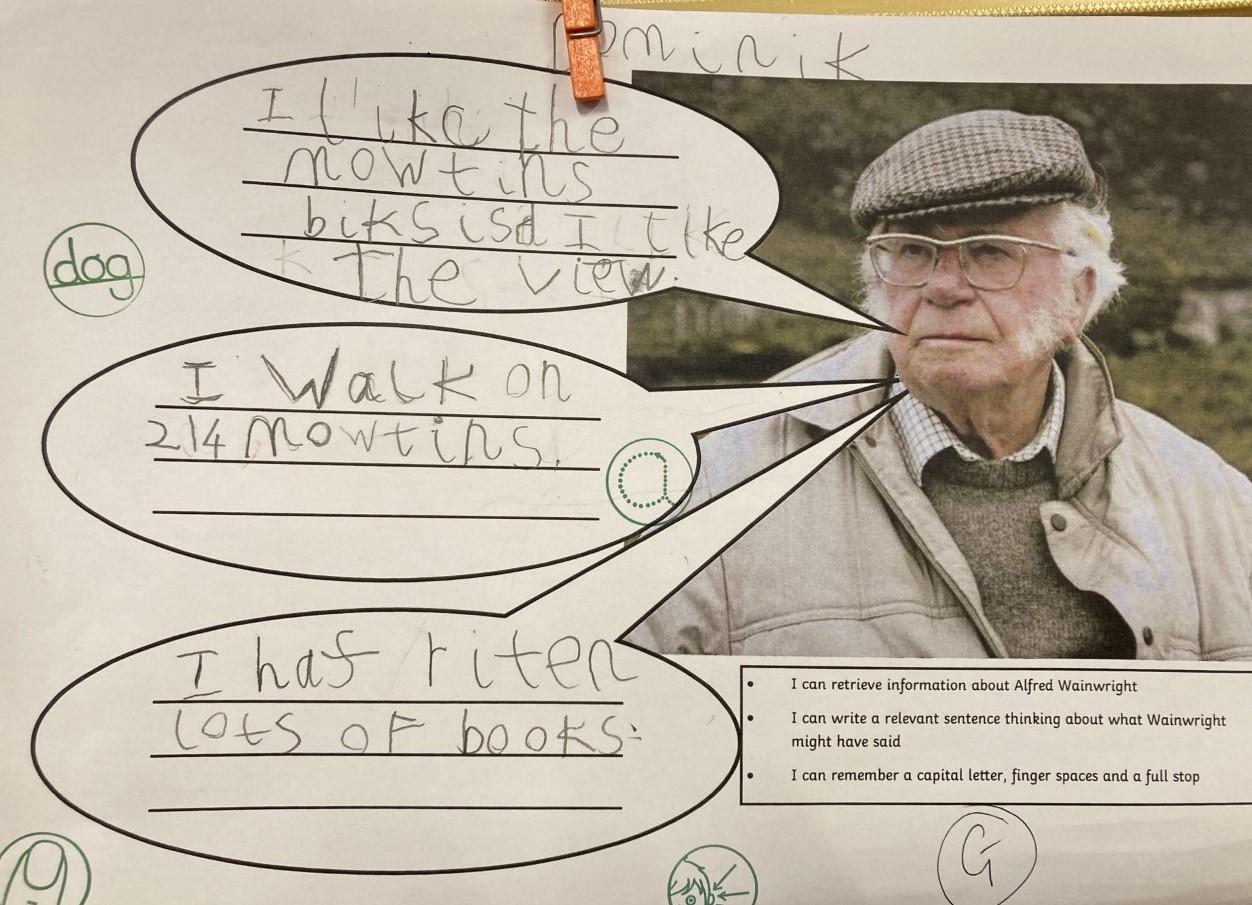 Dominik
I like the
mowtins
biksisd I like
the view.
dog
I Walk on
214 mowtins.
a
I haf riten
lots oF books.
I can retrieve information about Alfred Wainwright
I can write a relevant sentence thinking about what Wainwright
might have said
I can remember a capital letter, finger spaces and a full stop
G